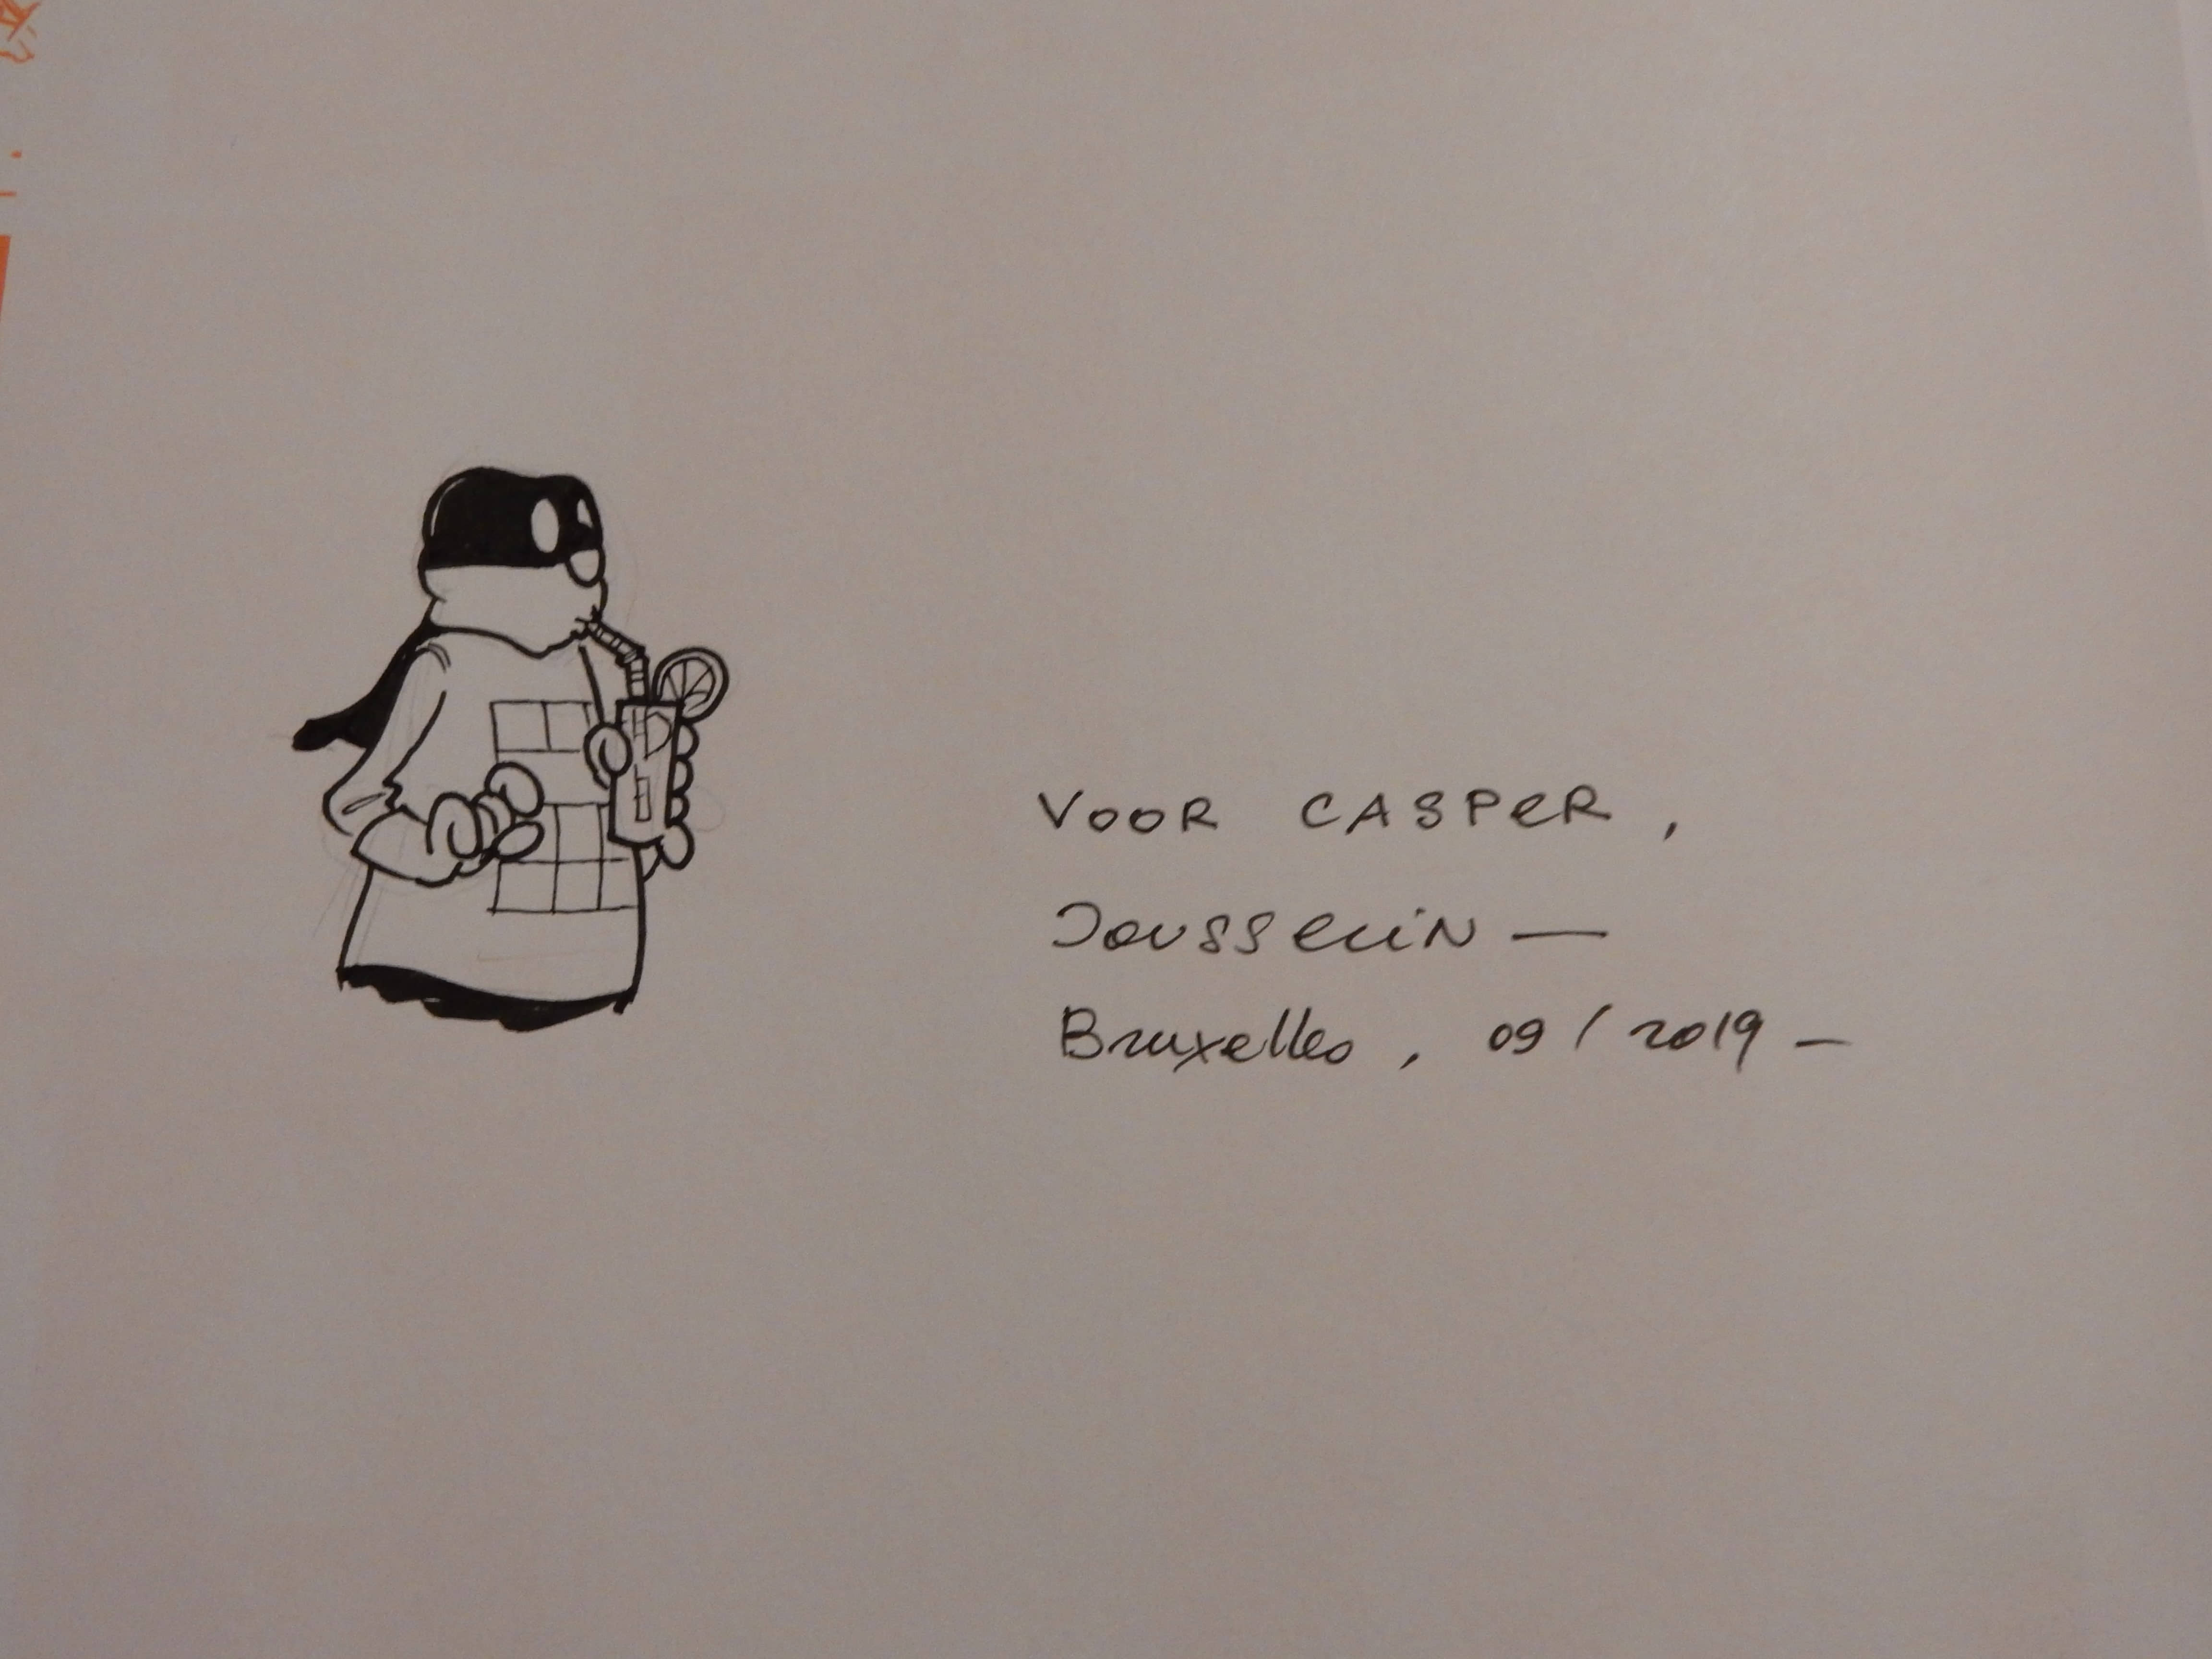 VOOR CASPER,
JOUSSELIN —
Bruxelles, 09/2019 —